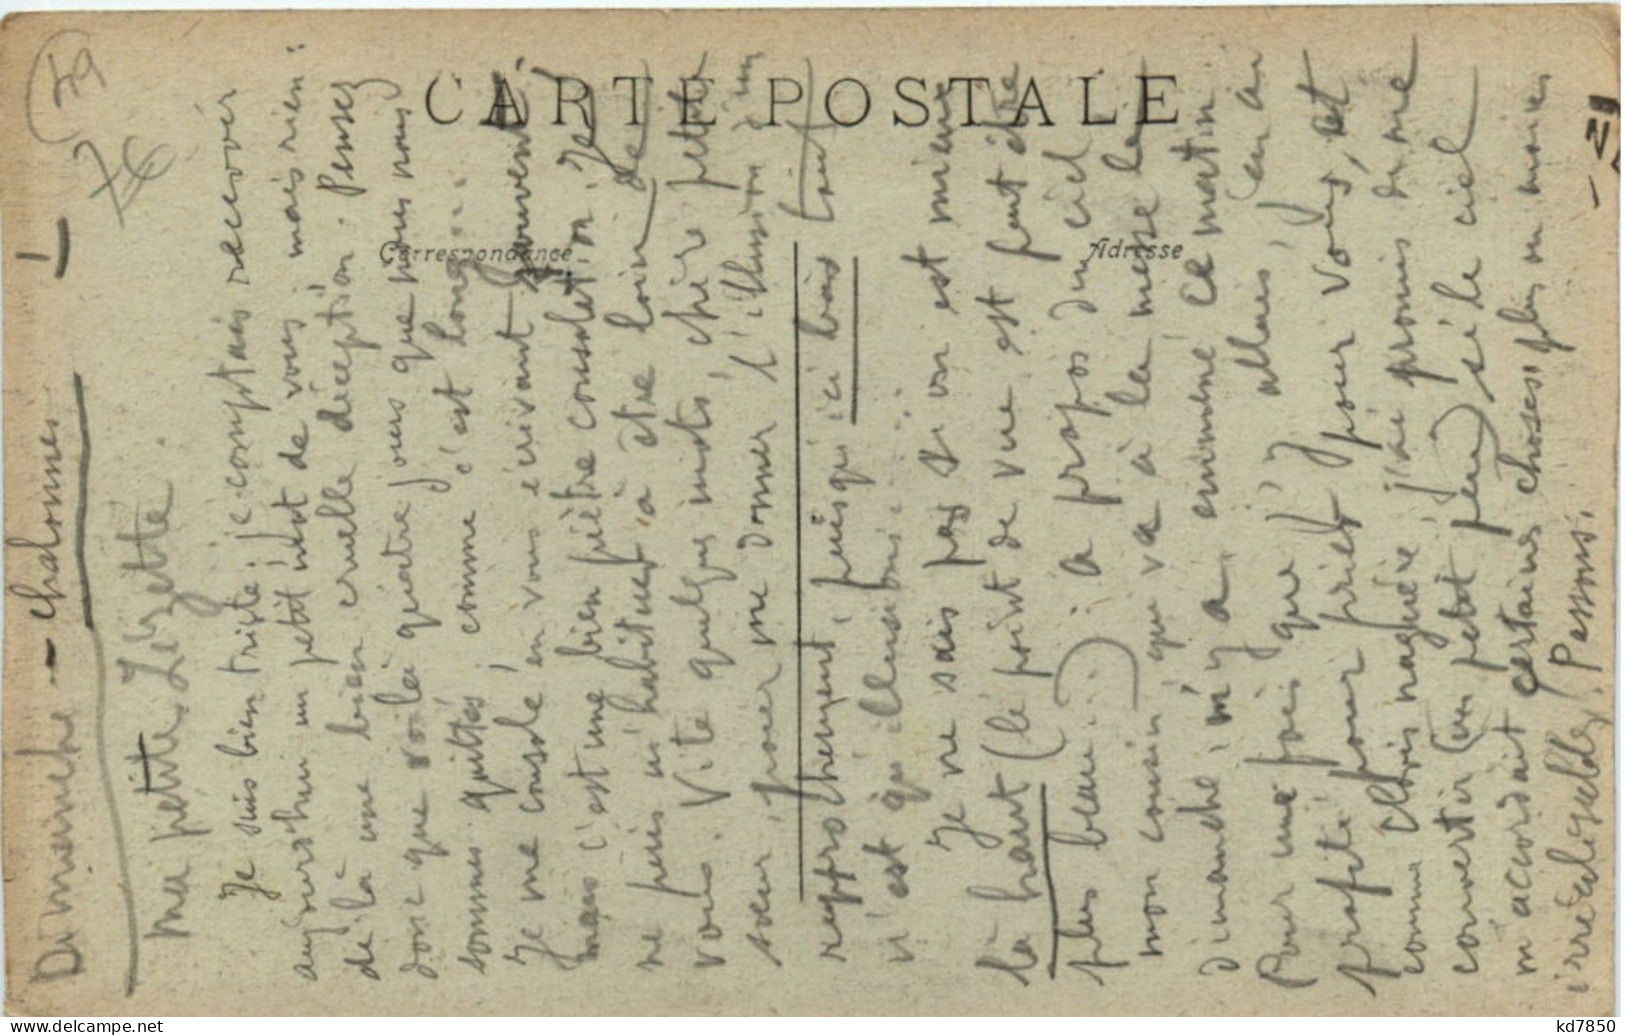 CARTE POSTALE
Correspondance
Adresse
59
76
Dimanche - Chalonnes
I
Ma petite Lizette.
Je suis bien triste; je comptais recevoir
aujourd'hui un petit mot de vous; mais rien:
de là une bien cruelle déception. Pensez
donc que voilà quatre jours que nous nous
sommes quittés, comme c'est long...
Je me console en vous écrivant souvent,
mais c'est une bien piètre consolation. Je
ne puis m'habituer à être loin de
vous. Vite quelques mots, chère petite
soeur, pour me donner l'illusion d'un
rapprochement, puisqu'ici bas tout
n'est qu'illusion....
Je ne sais pas si on est mieux
là haut (le point de vue est peut être
plus beau....): à propos du ciel
mon cousin, qui va à la messe le
dimanche, m'y a emmené ce matin.
Pour une fois que j'y allais, j'en ai
profité pour prier pour vous, et
comme Clovis naguère, j'ai promis de me
convertir (un petit peu) si le ciel
m'accordait certaines choses, plus ou moins
irréalisables. Passons.